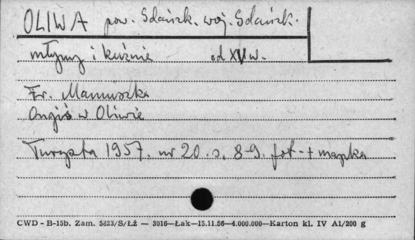 OLIWA pow. Gdańsk. woj. Gdańsk.
młyny i kuźnie od XV w.
Fr. Mamuszka
Ongiś w Oliwie
Turysta 1957. nr 20. s. 8-9. fot + mapka
CWD - B-15b. Zam. 5823/S/ŁŻ — 3016—Łak—15.11.56—4.000.000—Karton kl. IV A1/200 g